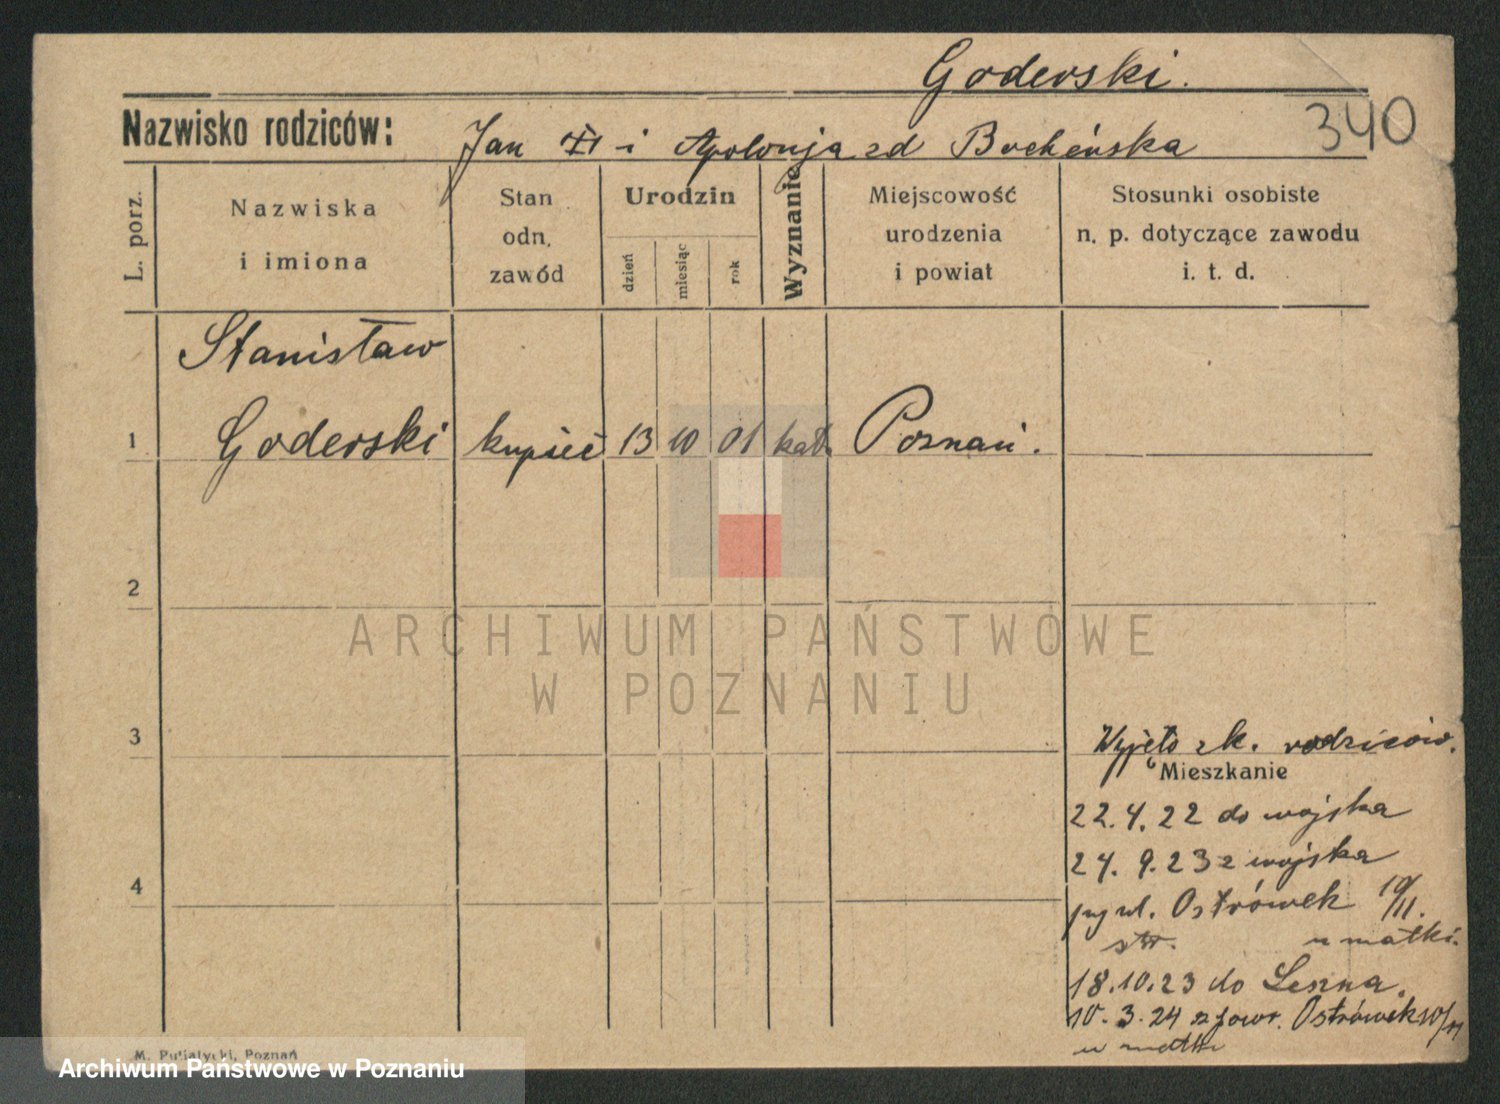 Goderski.
340
Nazwisko rodziców: Jan i Apolonja zd Bocheńska
L. porz.
Nazwiska
i imiona
Stan
odn.
zawód
Urodzin
dzień
miesiąc
rok
Wyznanie
Miejscowość
urodzenia
i powiat
Stosunki osobiste
n. p. dotyczące zawodu
i. t. d.
Stanisław
1 Goderski kupiec 13 10 01 kat. Poznań.
2
3
Wyjęto z k. rodziców.
Mieszkanie
22.4.22 do wojska
4
24.9.23 z wojska
ul. Ostrówek 10/11.
u matki.
18.10.23 do Leszna.
10.3.24 z powr. Ostrówek 10/11
u matki
M. Putiatycki, Poznań
ARCHIWUM PAŃSTWOWE
W POZNANIU
Archiwum Państwowe w Poznaniu